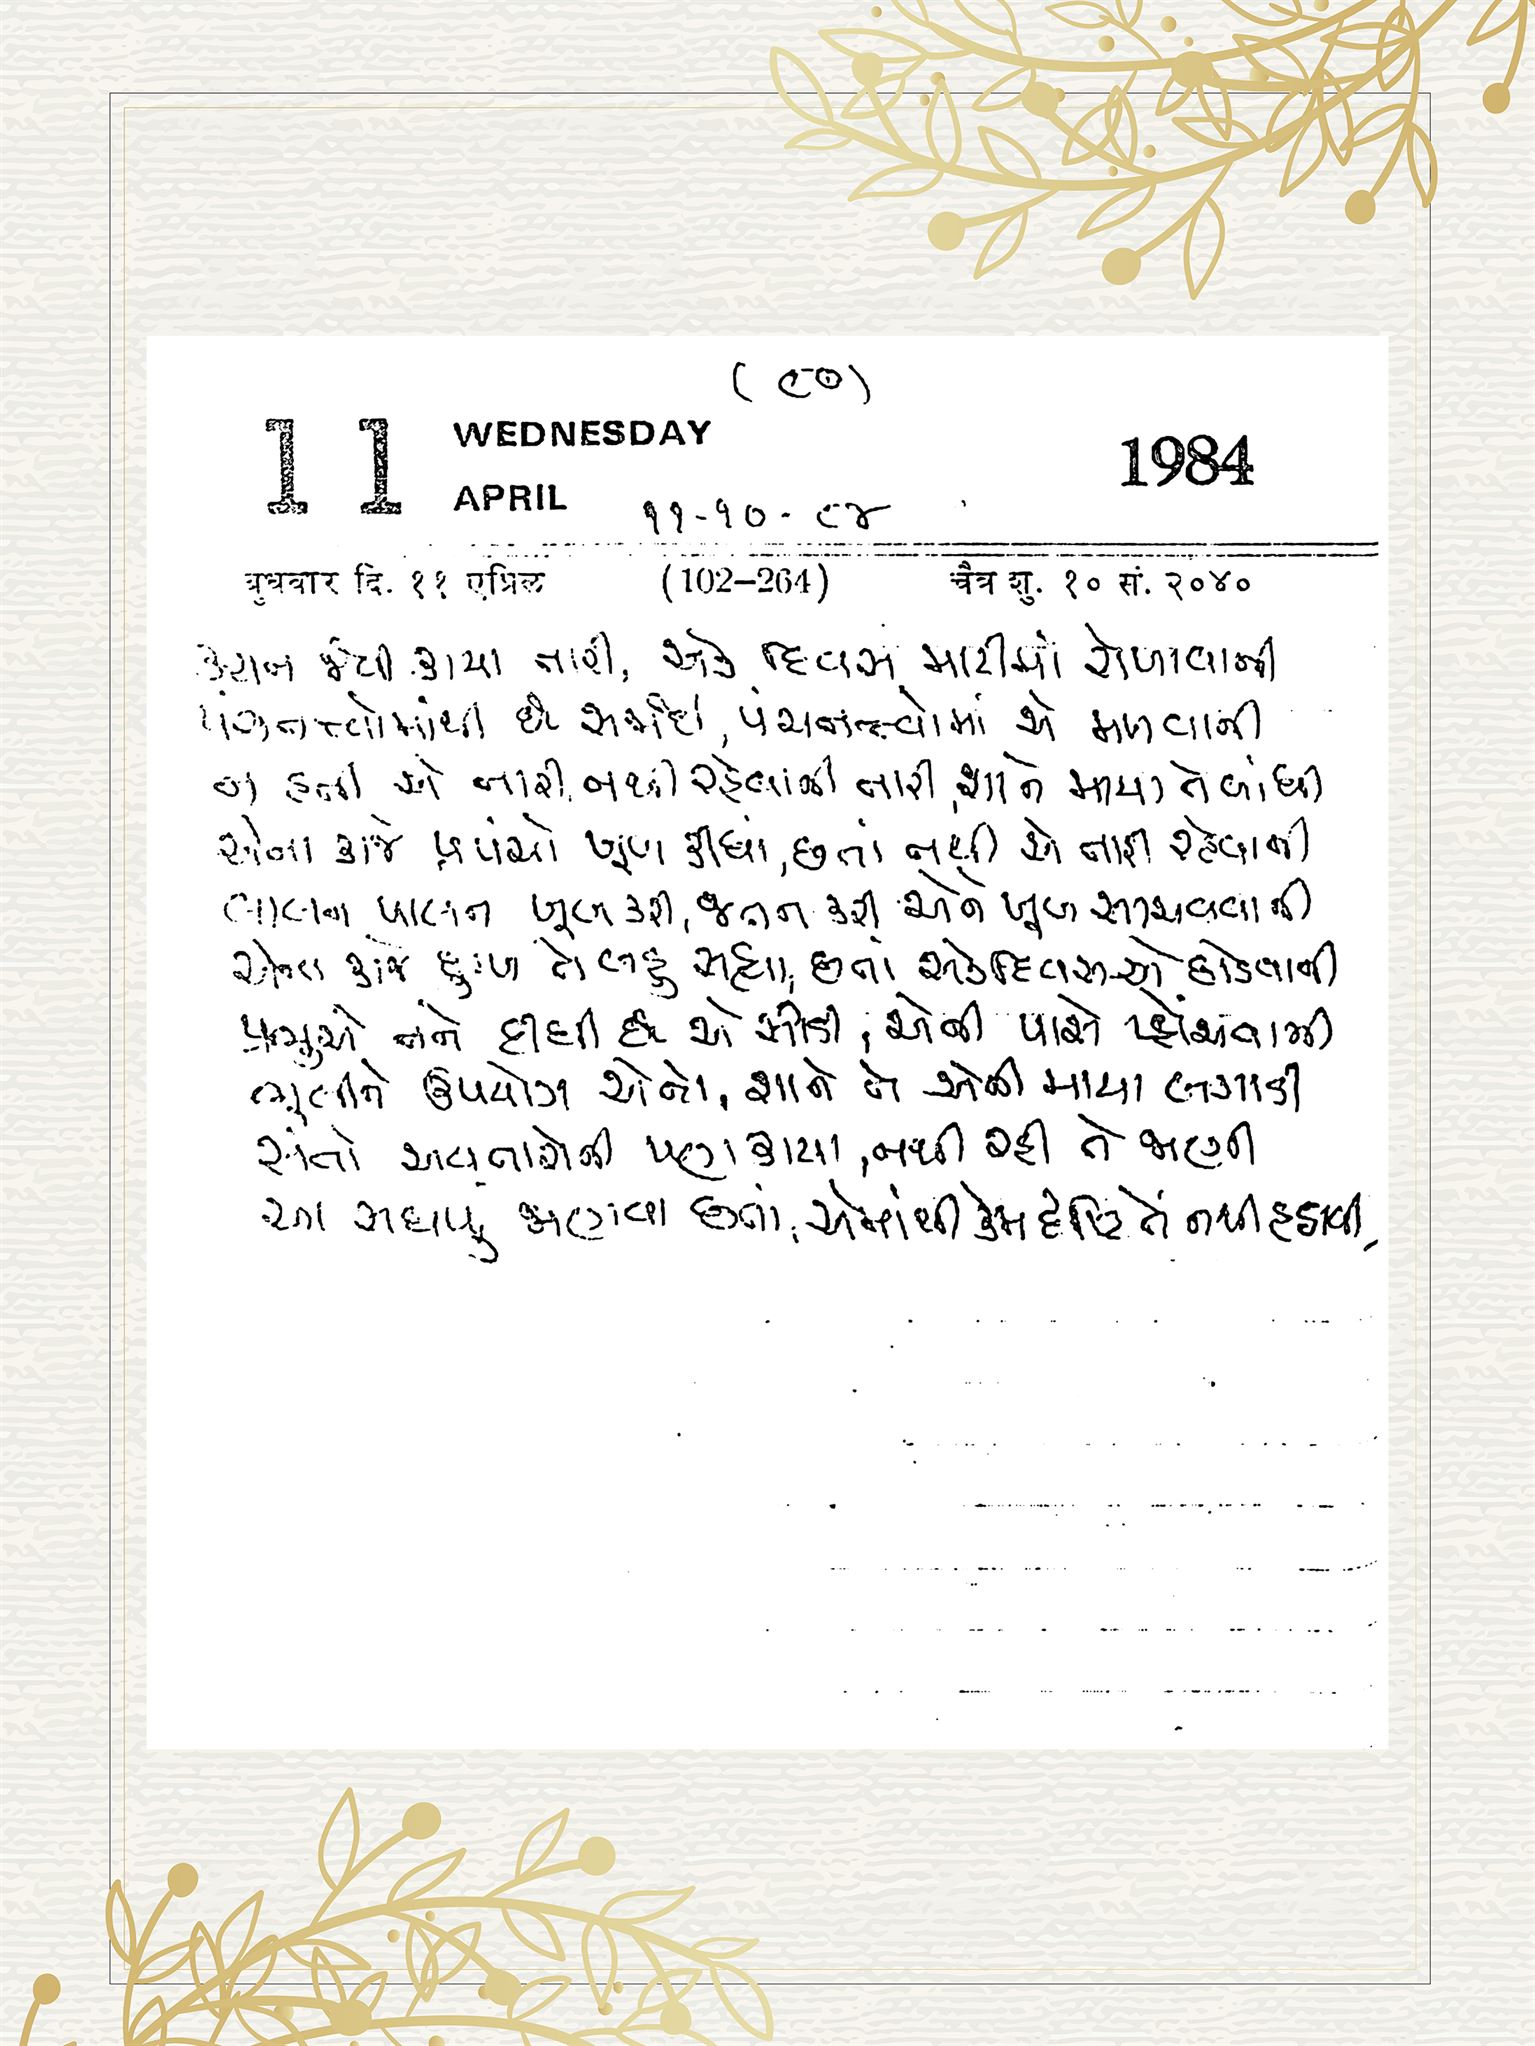 (૯૦)
11 WEDNESDAY
APRIL 1984
૧૧-૧૦-૮૪
बुधवार दि. ११ एप्रिल (102–264) चैत्र शु. १० सं. २०४०
કંચન જેવી કાયા તારી, એક દિવસ માટીમાં રોળાવાની
પંચતત્ત્વોમાંથી છે સર્જાઈ, પંચતત્ત્વોમાં એ મળવાની
ન હતી એ તારી, નથી રહેવાની તારી, શાને માયા તે બાંધી
એના કાજે પ્રપંચો ખૂબ કીધાં, છતાં નથી એ તારી રહેવાની
લાલન પાલન ખૂબ કરી, જતન કરી એને ખૂબ સાચવવાની
એના કાજે દુઃખ તે બહુ સહ્યા, છતાં એક દિવસ એ છોડવાની
પ્રભુએ તને દીધી છે એ સીડી, એની પાસે પ્હોંચવાની
ભૂલીને ઉપયોગ એનો, શાને તે એની માયા લગાડી
સંતો અવતારોની પણ કાયા, નથી રહી તે જાણી
આ સઘળું જાણવા છતાં, એમાંથી કેમ દૃષ્ટિ તેં નથી હટાવી